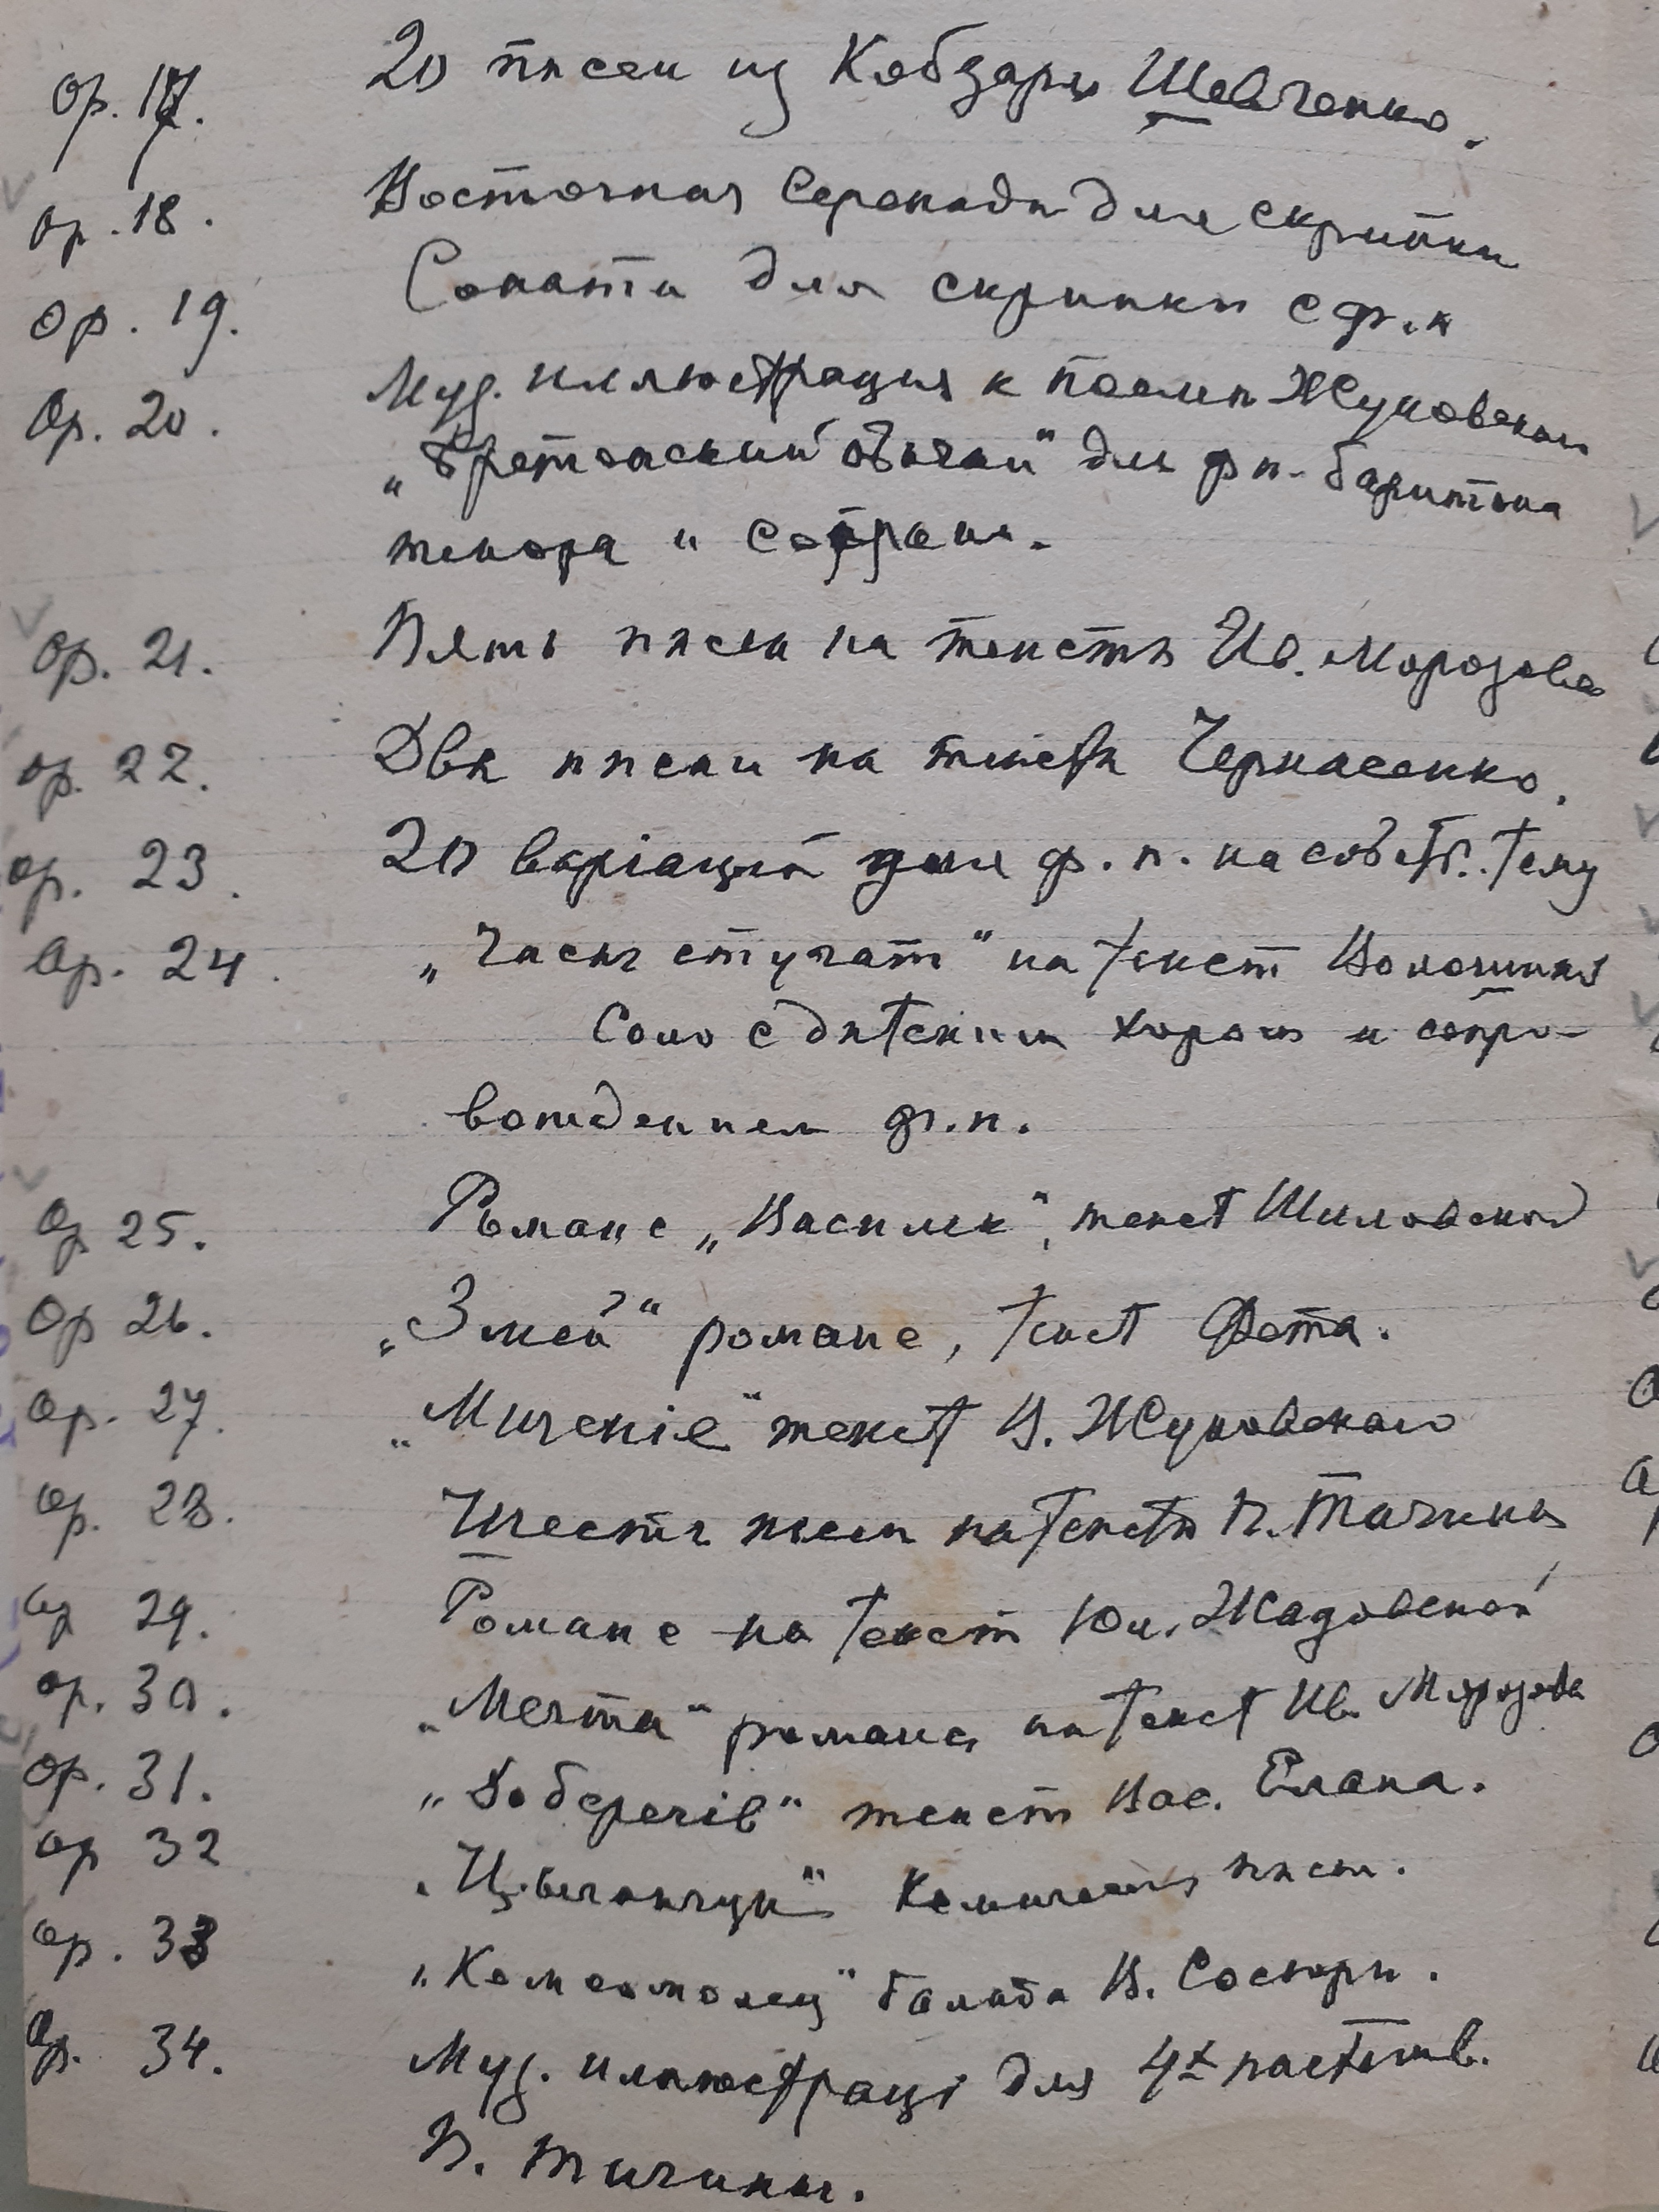 Op. 17. 20 пѣсен из Кобзаря Шевченко.
Op. 18. Восточная Серенада для скрипки
Op. 19. Соната для скрипки с ф.п
Op. 20. Муз. иллюстрация к поэмѣ Жуковского
„ обычай“ для фп. баритона
тенора и сопрано.
Op. 21. Пять пѣсен на тексты Ив. Морозова
Op. 22. Двѣ пѣсни на тексты Черкасенко.
Op. 23. 20 варіаций для ф.п. на собств. тему
Op. 24. „Часы стучат“ на текст Волошина
Соло с дѣтским хором и сопро-
вождением ф.п.
Op 25. Романс „Василек“, текст Шиловской
Op 26. „Змей“ романс, текст Фета.
Op. 27. „Мщеніе“ текст В. Жуковского
Op. 28. Шесть пѣсен на тексты П. Тычины
Op 29. Романс на текст Юл. Жадовской
Op. 30. „Мечта“ романс на текст Ив. Морозова
Op. 31. текст Вас. Елана.
Op 32 пѣсн.
Op. 33 „Комсомолец“ балада В. Сосюры.
Op. 34. Муз. иллюстрації для 4х
П. Тичины.